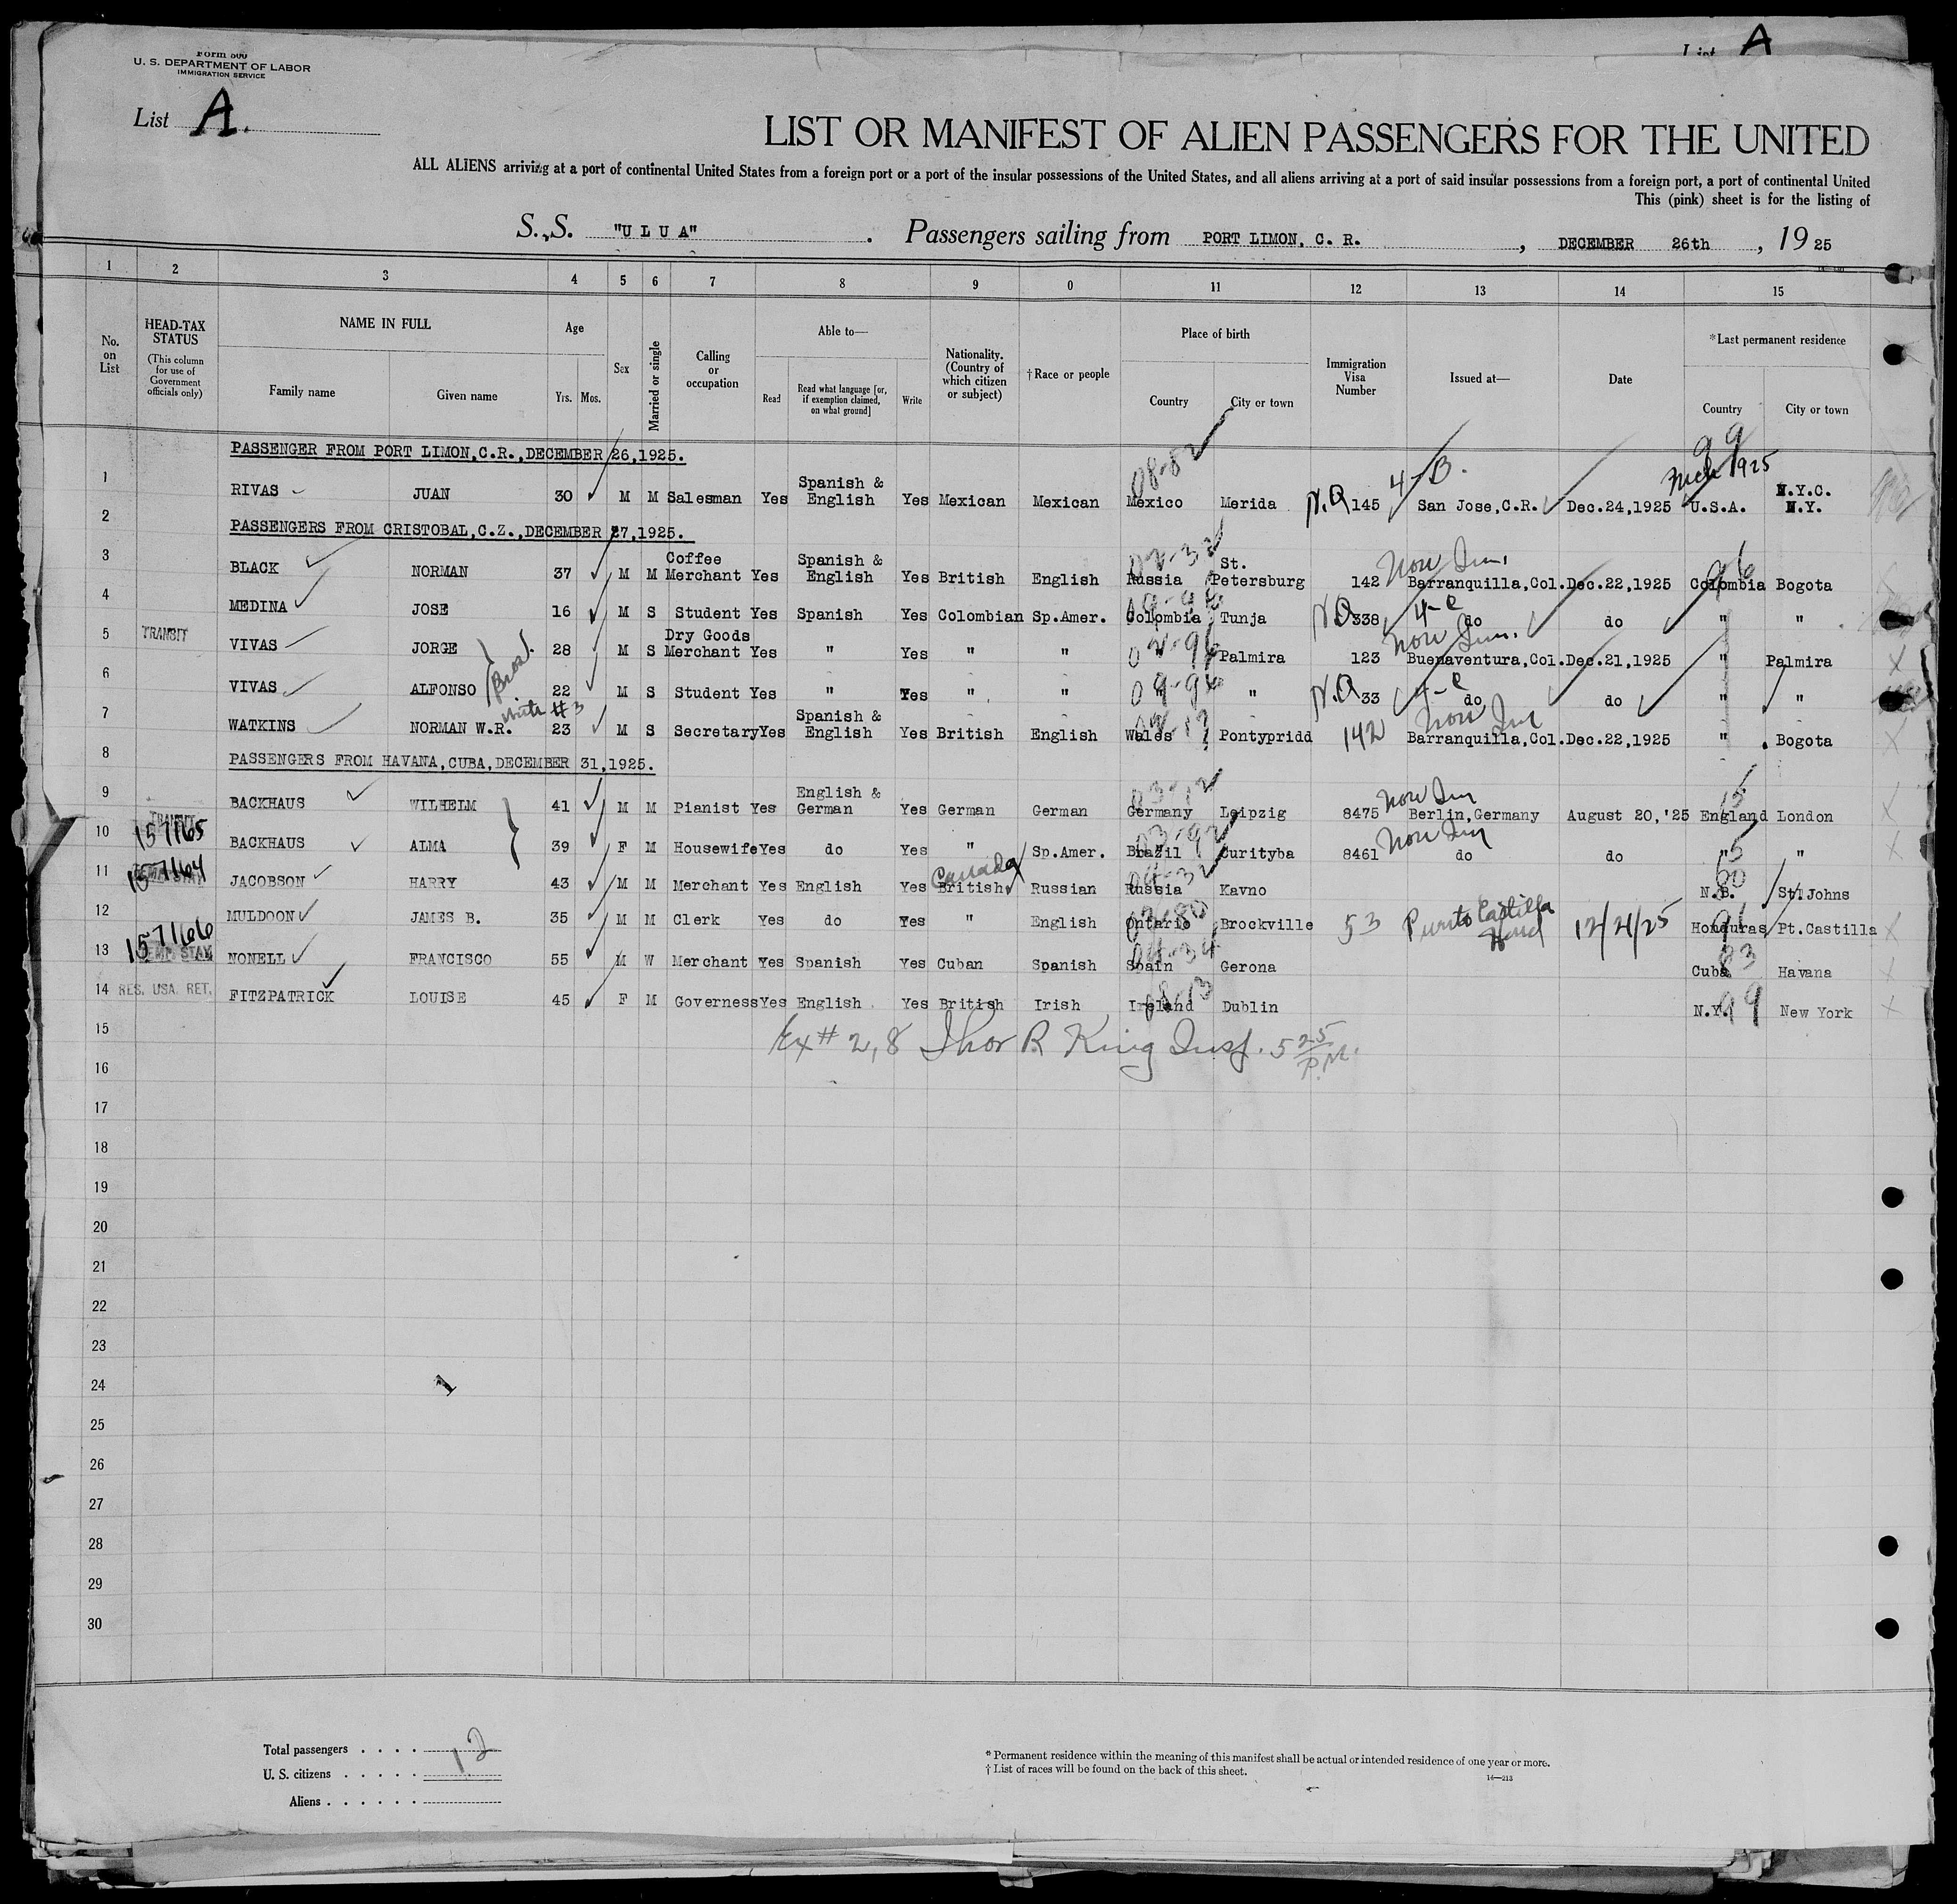 List A
Form 500
U. S. DEPARTMENT OF LABOR
IMMIGRATION SERVICE
List A.
LIST OR MANIFEST OF ALIEN PASSENGERS FOR THE UNITED
ALL ALIENS arriving at a port of continental United States from a foreign port or a port of the insular possessions of the United States, and all aliens arriving at a port of said insular possessions from a foreign port, a port of continental United
This (pink) sheet is for the listing of
S. S. "U L U A" . Passengers sailing from PORT LIMON, C. R. , DECEMBER 26th , 19 25
1 2 3 4 5 6 7 8 9 0 11 12 13 14 15
No. on List
HEAD-TAX STATUS
(This column for use of Government officials only)
NAME IN FULL
Family name Given name
Age
Yrs. Mos.
Sex
Married or single
Calling or occupation
Able to—
Read Read what language [or, if exemption claimed, on what ground] Write
Nationality. (Country of which citizen or subject)
†Race or people
Place of birth
Country City or town
Immigration Visa Number
Issued at—
Date
*Last permanent residence
Country City or town
PASSENGER FROM PORT LIMON,C.R.,DECEMBER 26,1925.
1 RIVAS JUAN 30 M M Salesman Yes Spanish & English Yes Mexican Mexican 08-82 Mexico Merida N.Q 145 4-B. San Jose,C.R. Dec.24,1925 99 1925 U.S.A. N.Y.C. N.Y.
2 PASSENGERS FROM CRISTOBAL,C.Z.,DECEMBER 27,1925.
3 BLACK NORMAN 37 M M Coffee Merchant Yes Spanish & English Yes British English Russia St. Petersburg 142 Non Im. Barranquilla,Col. Dec.22,1925 96 Colombia Bogota
4 MEDINA JOSE 16 M S Student Yes Spanish Yes Colombian Sp.Amer. 09-96 Colombia Tunja N.Q 338 4-e do do " "
5 TRANSIT VIVAS JORGE Bros. 28 M S Dry Goods Merchant Yes " Yes " " " Palmira 123 Non Im. Buenaventura,Col. Dec.21,1925 " Palmira
6 VIVAS ALFONSO 22 M S Student Yes " Yes " " 09-96 " " N.Q 33 4-e do do " "
7 WATKINS NORMAN W.R. with #3 23 M S Secretary Yes Spanish & English Yes British English Wales Pontypridd 142 Non Im Barranquilla,Col. Dec.22,1925 " Bogota
8 PASSENGERS FROM HAVANA,CUBA,DECEMBER 31,1925.
9 TRANSIT BACKHAUS WILHELM 41 M M Pianist Yes English & German Yes German German 03-12 Germany Leipzig 8475 Non Im Berlin,Germany August 20,'25 15 England London
10 157165 BACKHAUS ALMA 39 F M Housewife Yes do Yes " Sp.Amer. 03-92 Brazil Curityba 8461 Non Im do do " "
11 157164 JACOBSON HARRY 43 M M Merchant Yes English Yes Canada British Russian Russia Kavno 80 N.B. St. Johns
12 MULDOON JAMES B. 35 M M Clerk Yes do Yes " English Ontario Brockville 53 Puerto Castilla Hond 12/21/25 91 Honduras Pt.Castilla
13 157166 TEMP STAY NONELL FRANCISCO 55 M W Merchant Yes Spanish Yes Cuban Spanish Spain Gerona 83 Cuba Havana
14 RES. USA. RET. FITZPATRICK LOUISE 45 F M Governess Yes English Yes British Irish Ireland Dublin 99 N.Y. New York
15 Ex # 2,8 Thor R King Insp. 5 25 P.M.
16
17
18
19
20
21
22
23
24
25
26
27
28
29
30
Total passengers . . . . 12
U. S. citizens . . . . .
Aliens . . . . . .
* Permanent residence within the meaning of this manifest shall be actual or intended residence of one year or more.
† List of races will be found on the back of this sheet.
14—213